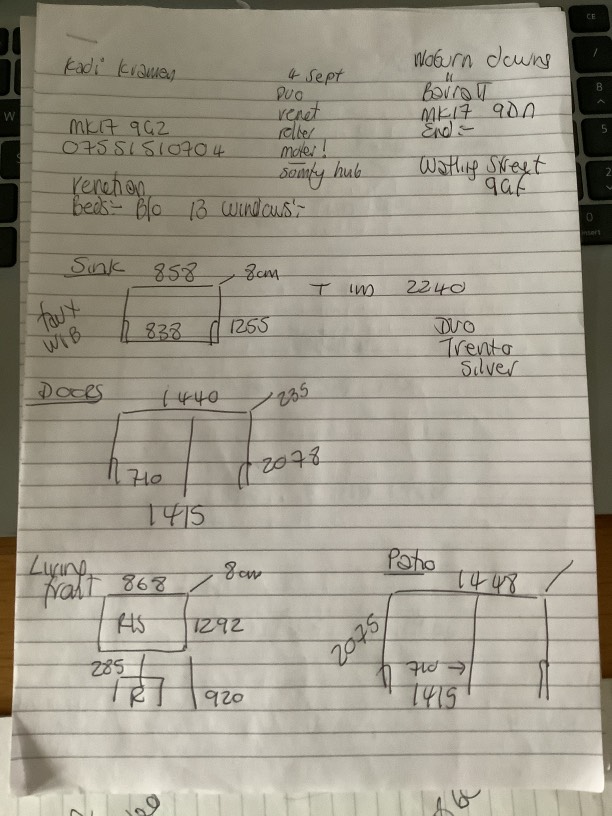 Kadi Kramer
MK17 9GZ
07551510704
4 Sept
DUO
venet
roller
motor!
somfy hub
Woburn downs
"
Barratt
MK17 9DA
End:-
Watling Street
9GF
Venetian
Beds:- B/o 13 windows:-
Sink 858 8cm
faux
W/B
838 1255
T in 2240
DUO
Trento
Silver
Doors 1440 235
710 2078
1415
Living
front 868 8cm
RHS 1292
285
R 920
Patio 1448
2075
710 →
1415